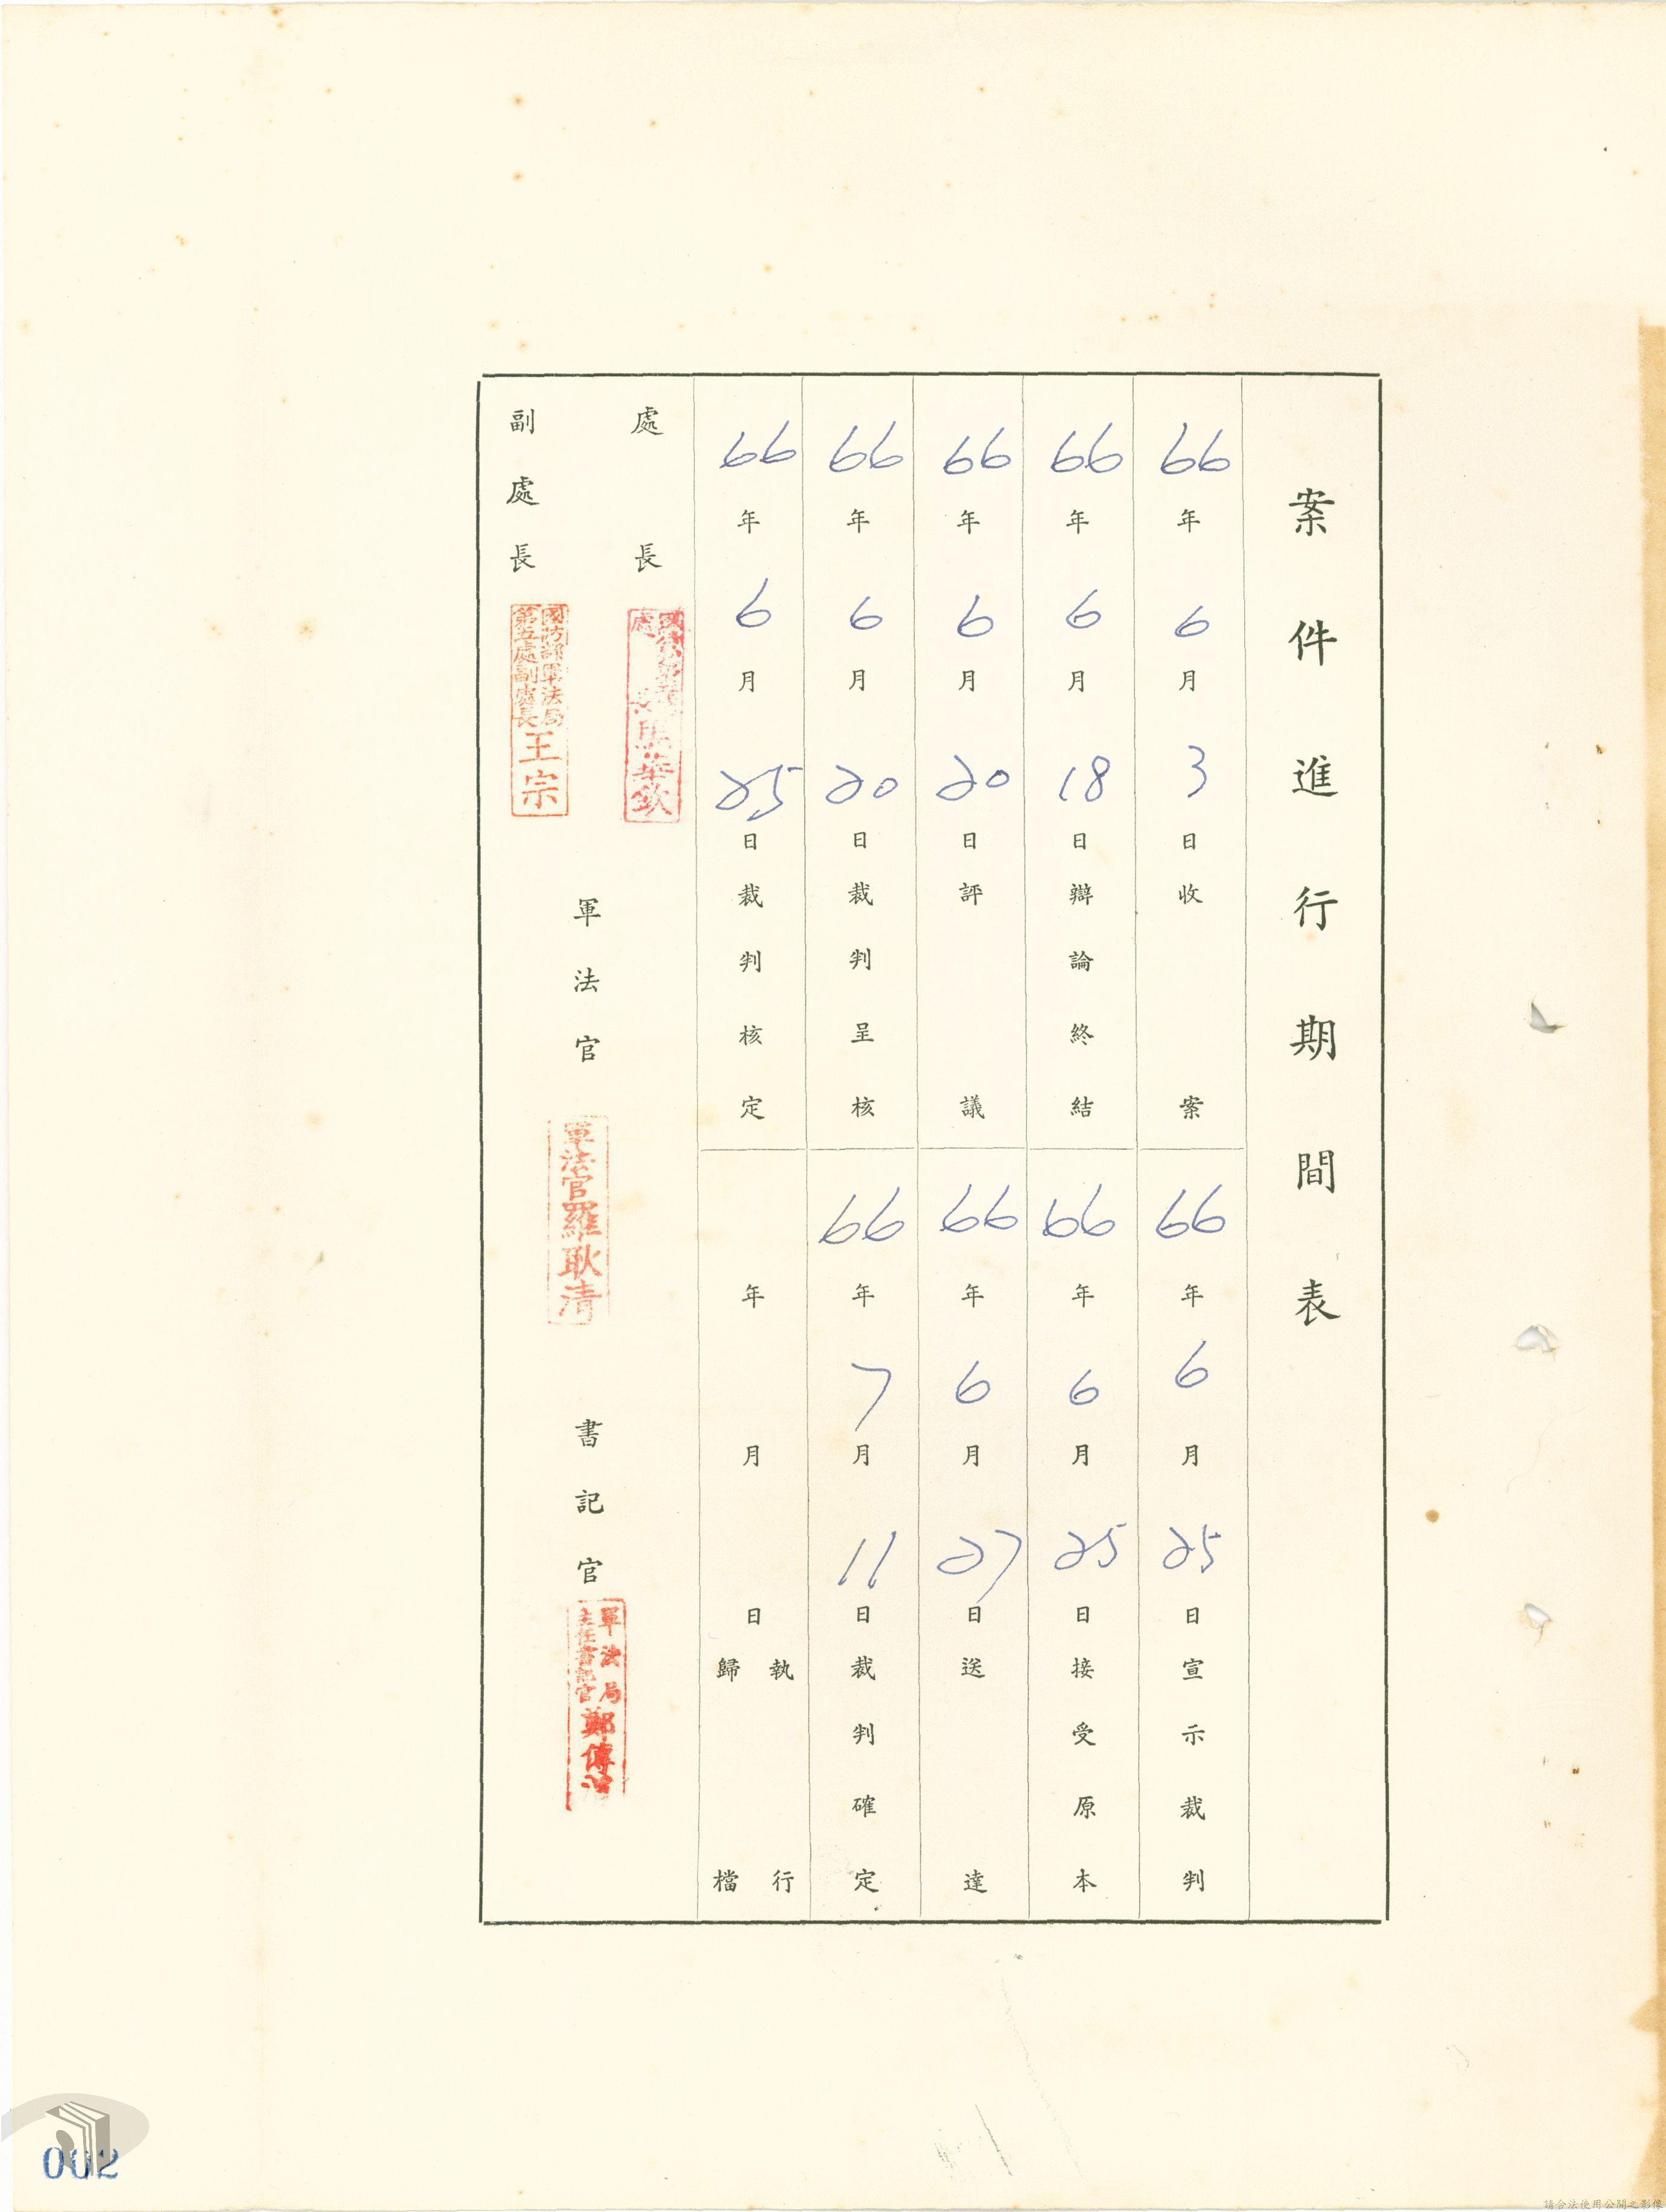 案件進行期間表
66年6月3日收案
66年6月25日宣示裁判
66年6月18日辯論終結
66年6月25日接受原本
66年6月20日評議
66年6月27日送達
66年6月20日裁判呈核
66年7月11日裁判確定
66年6月25日裁判核定
年月日執行歸檔
處長
副處長
國防部軍法局
第五處副處長王宗
軍法官
軍法官羅耿清
書記官
軍法局
主任書記官鄭傳
002
請合法使用公開之影像